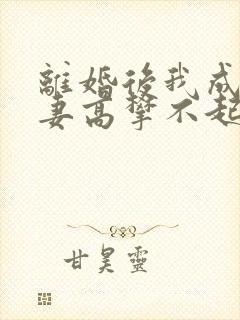 離婚後我成
妻高攀不起
甘昊靈